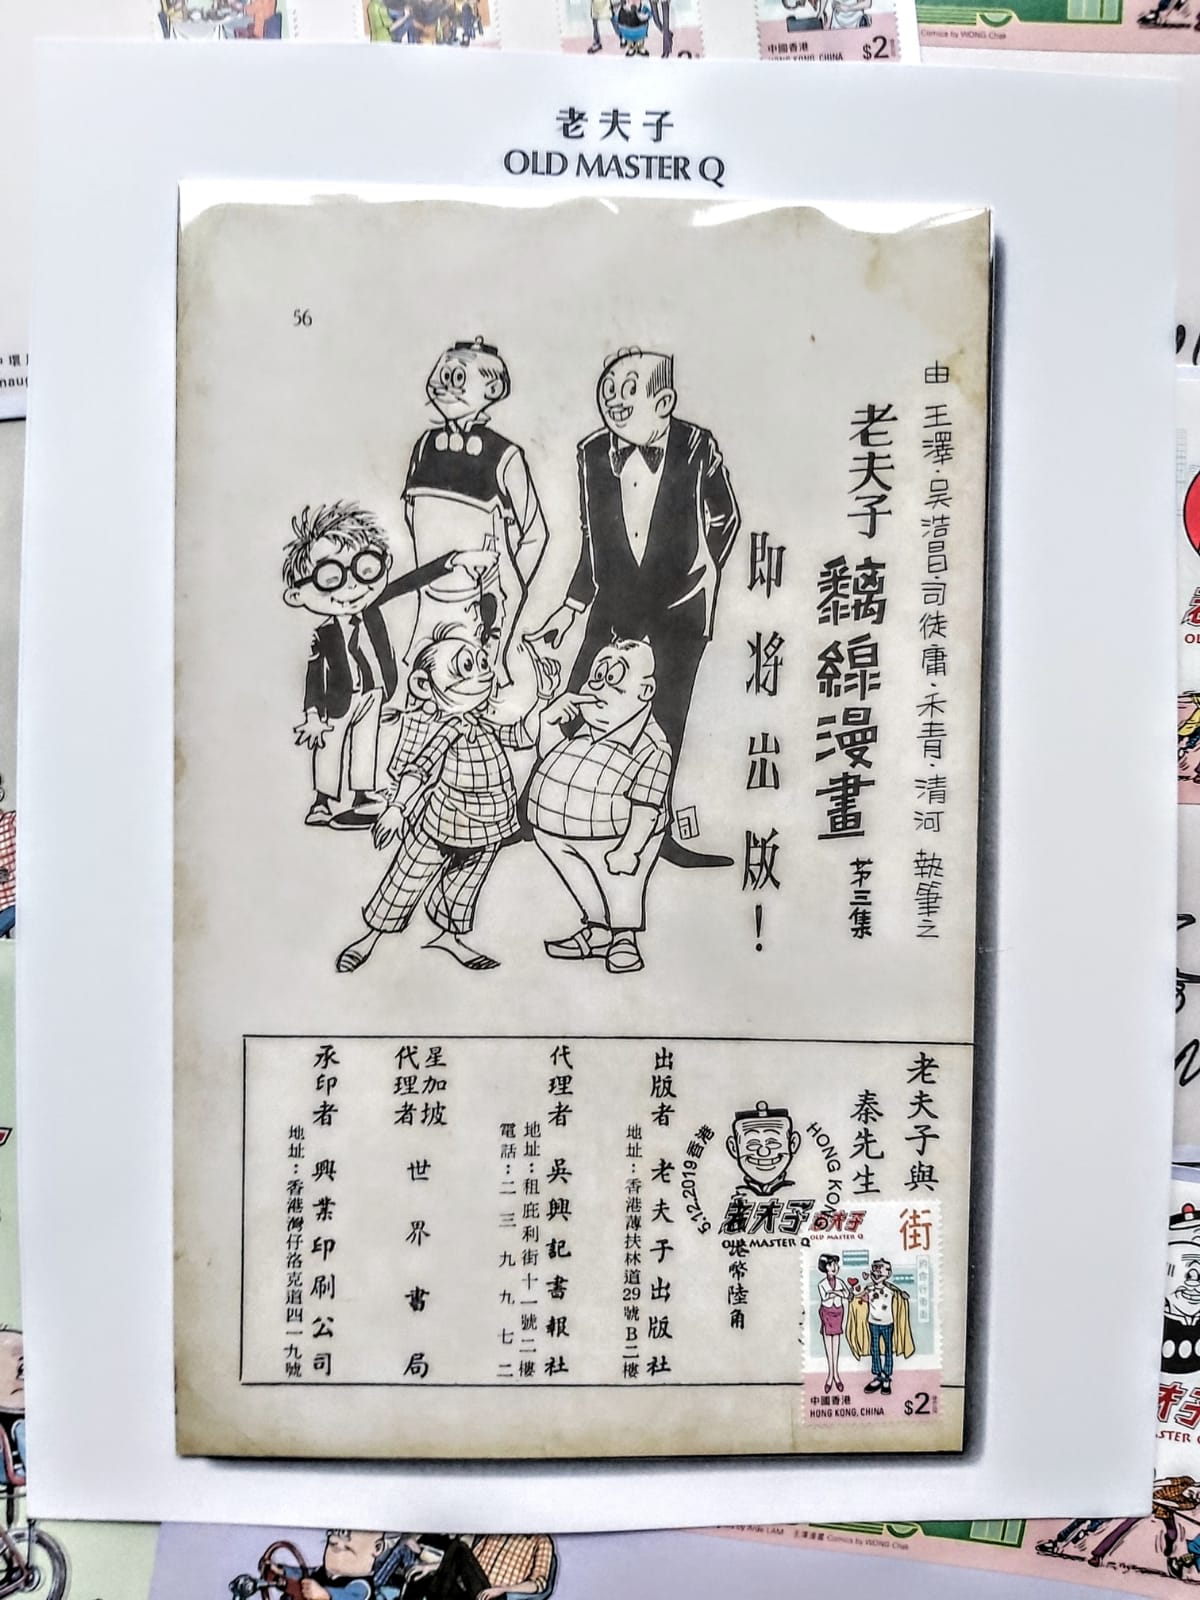 老夫子
OLD MASTER Q
56
由 王澤·吴浩昌·司徒庸·禾青·清河 執筆之
老夫子
黐線漫畫 第三集
即將出版！
老夫子與
秦先生
港幣陸角
出版者 老夫子出版社
地址：香港薄扶林道29號B二樓
代理者 吳興記書報社
地址：租庇利街十一號二樓
電話：二三九九七二
星加坡
代理者 世界書局
承印者 興業印刷公司
地址：香港灣仔洛克道四一九號
5.12.2019 香港
HONG KONG
老夫子
OLD MASTER Q
老夫子
OLD MASTER Q
街
中國香港
HONG KONG, CHINA
$2
中國香港
HONG KONG, CHINA
$2
Comics by WONG Chak
王澤漫畫 Comics by WONG Chak